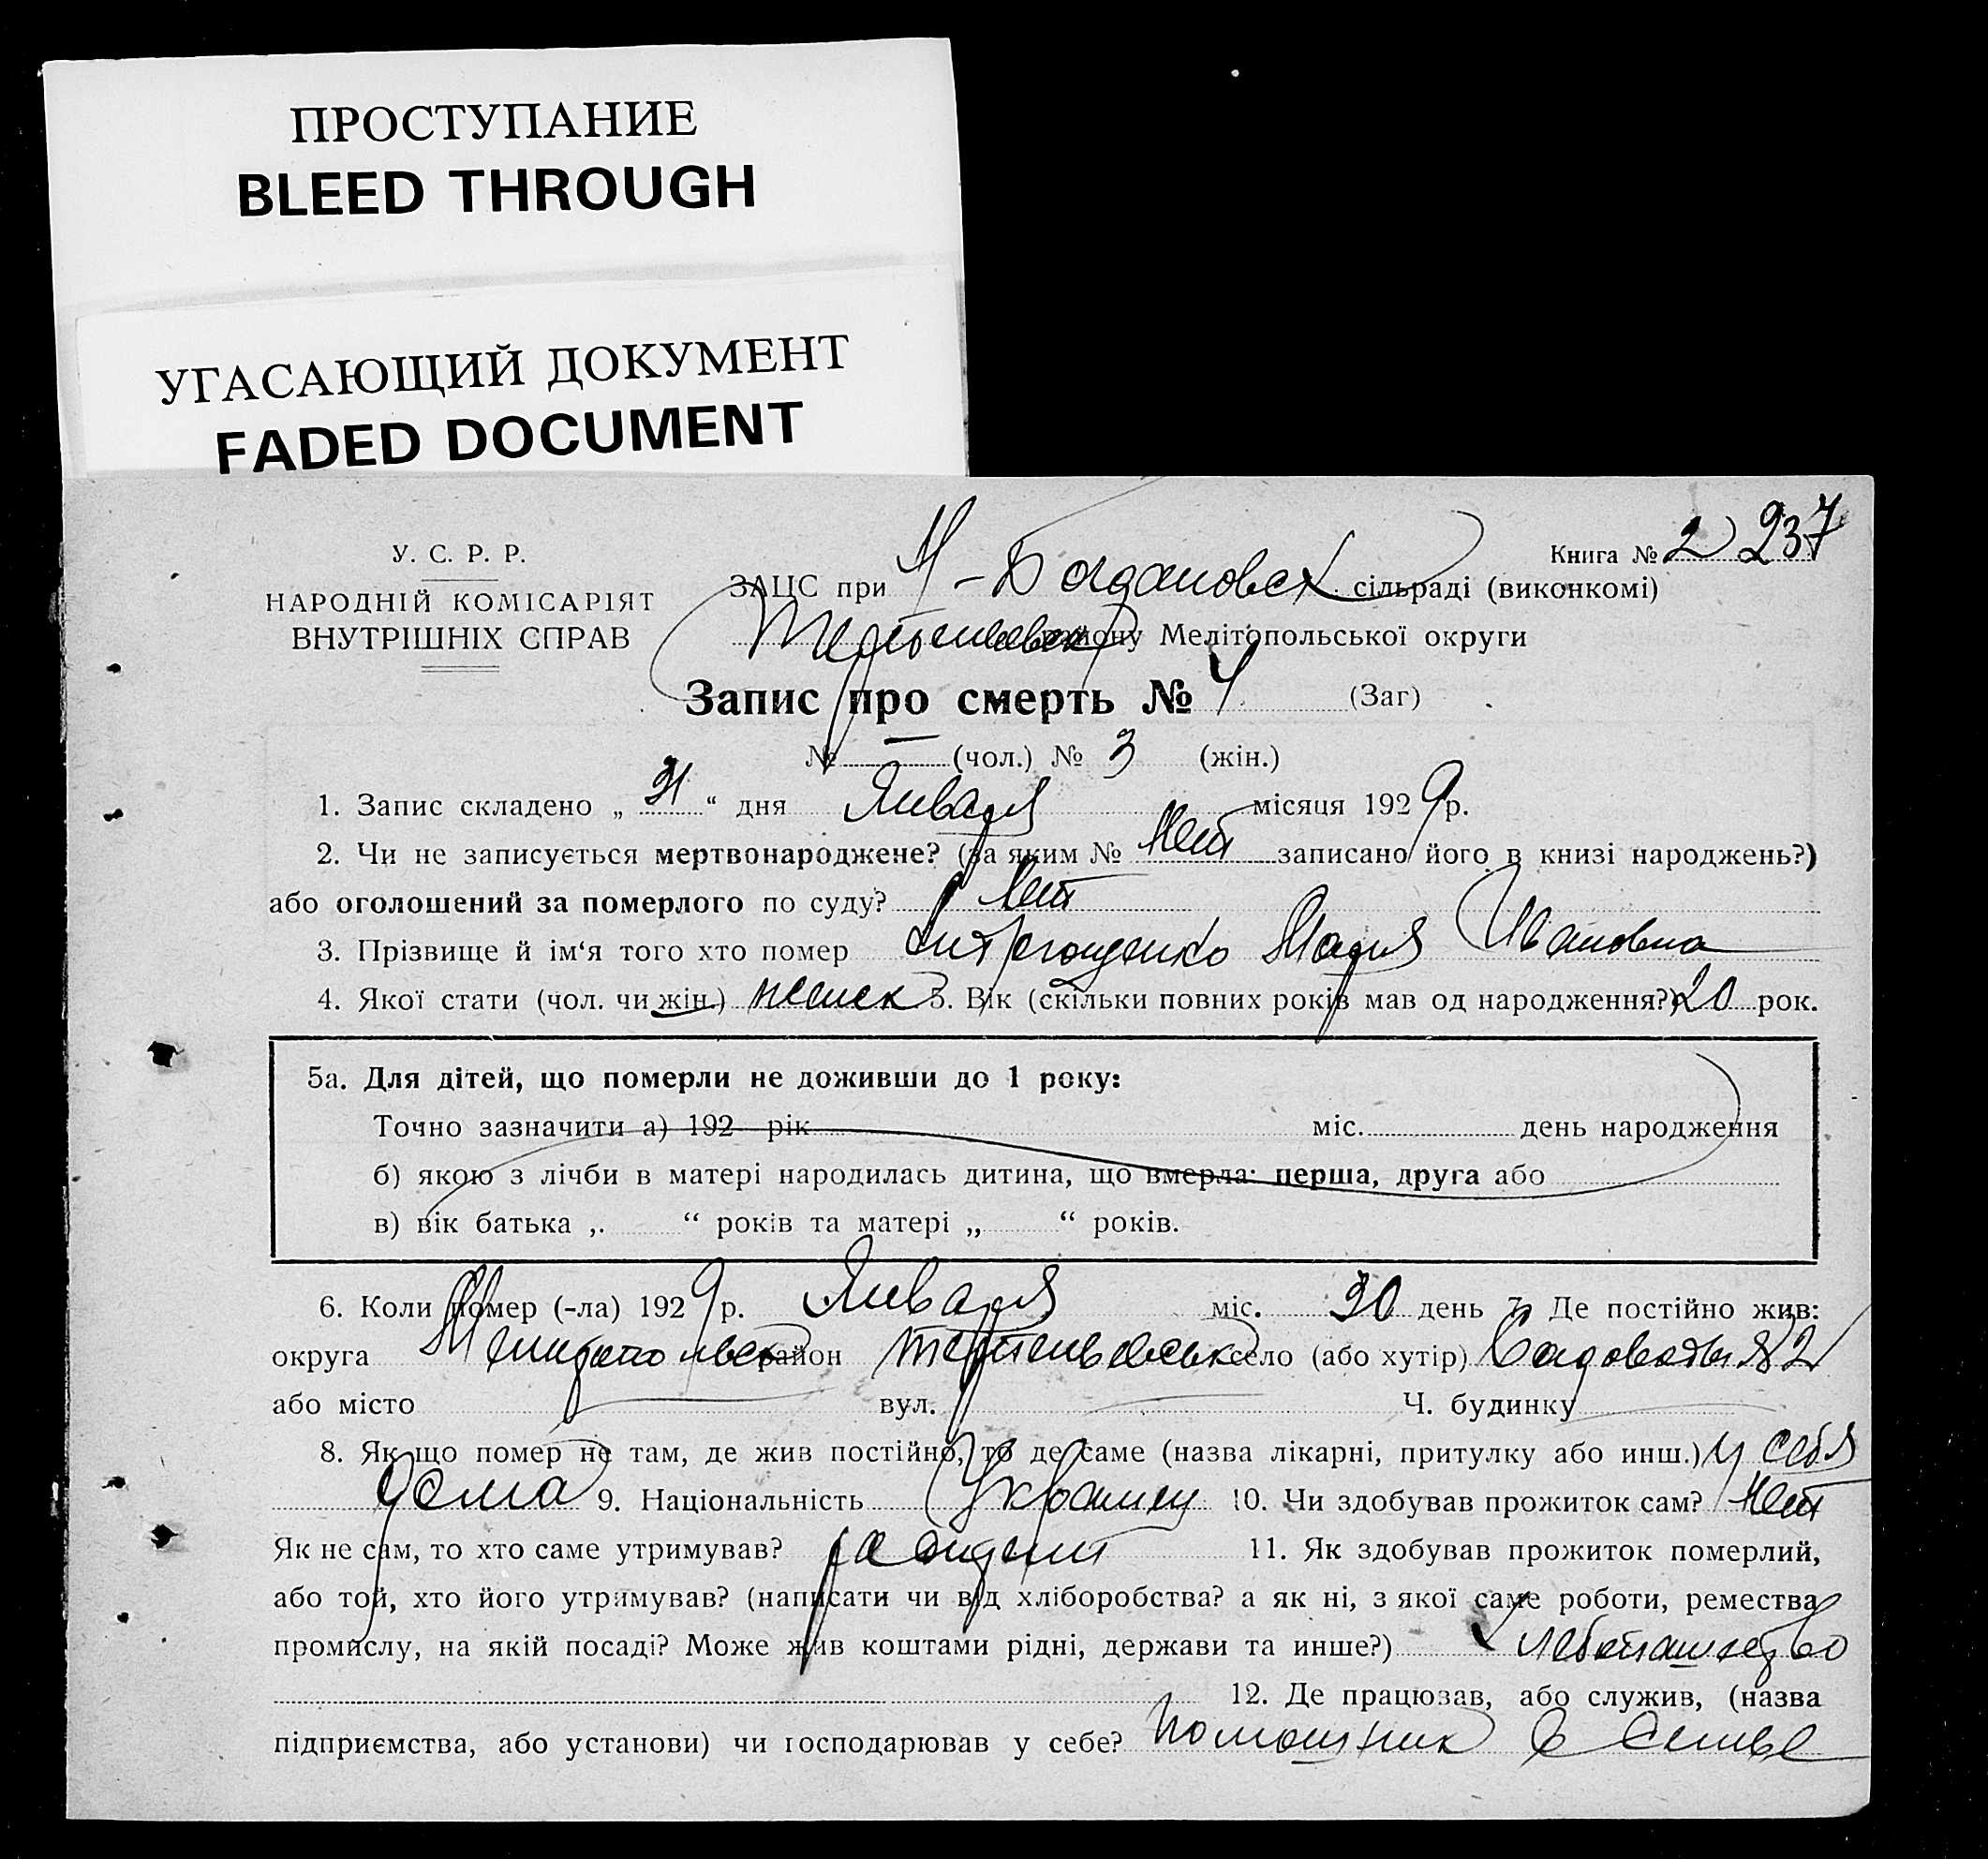 ПРОСТУПАНИЕ
BLEED THROUGH
УГАСАЮЩИЙ ДОКУМЕНТ
FADED DOCUMENT
У. С. Р. Р.
НАРОДНІЙ КОМІСАРІЯТ
ВНУТРІШНІХ СПРАВ
Книга № 2 237
ЗАЦС при Н-Богдановск сільраді (виконкомі)
району Мелітопольської округи
Запис про смерть № 4 (Заг)
№ — (чол.) № 3 (жін.)
1. Запис складено „ 31 “ дня Января місяця 1929 р.
2. Чи не записується мертвонароджене? (за яким № Нет записано його в книзі народжень?)
або оголошений за померлого по суду? Нет
3. Прізвище й ім‘я того хто помер Мария Ивановна
4. Якої стати (чол. чи жін.) женск 5. Вік (скільки повних років мав од народження?) 20 рок.
5а. Для дітей, що померли не доживши до 1 року:
Точно зазначити а) 192 рік міс. день народження
б) якою з лічби в матері народилась дитина, що вмерла: перша, друга або
в) вік батька „ “ років та матері „ “ років.
6. Коли помер (-ла) 1929 р. Января міс. 30 день 7. Де постійно жив:
округа район село (або хутір) № 2
або місто вул. Ч. будинку
8. Як що помер не там, де жив постійно, то де саме (назва лікарні, притулку або инш.) у себя
дома 9. Національність Украинц 10. Чи здобував прожиток сам? Нет
Як не сам, то хто саме утримував? 11. Як здобував прожиток померлий,
або той, хто його утримував? (написати чи від хліборобства? а як ні, з якої саме роботи, ремества
промислу, на якій посаді? Може жив коштами рідні, держави та инше?) Хлебопашество
12. Де працював, або служив, (назва
підприємства, або установи) чи господарював у себе? помощник в семье